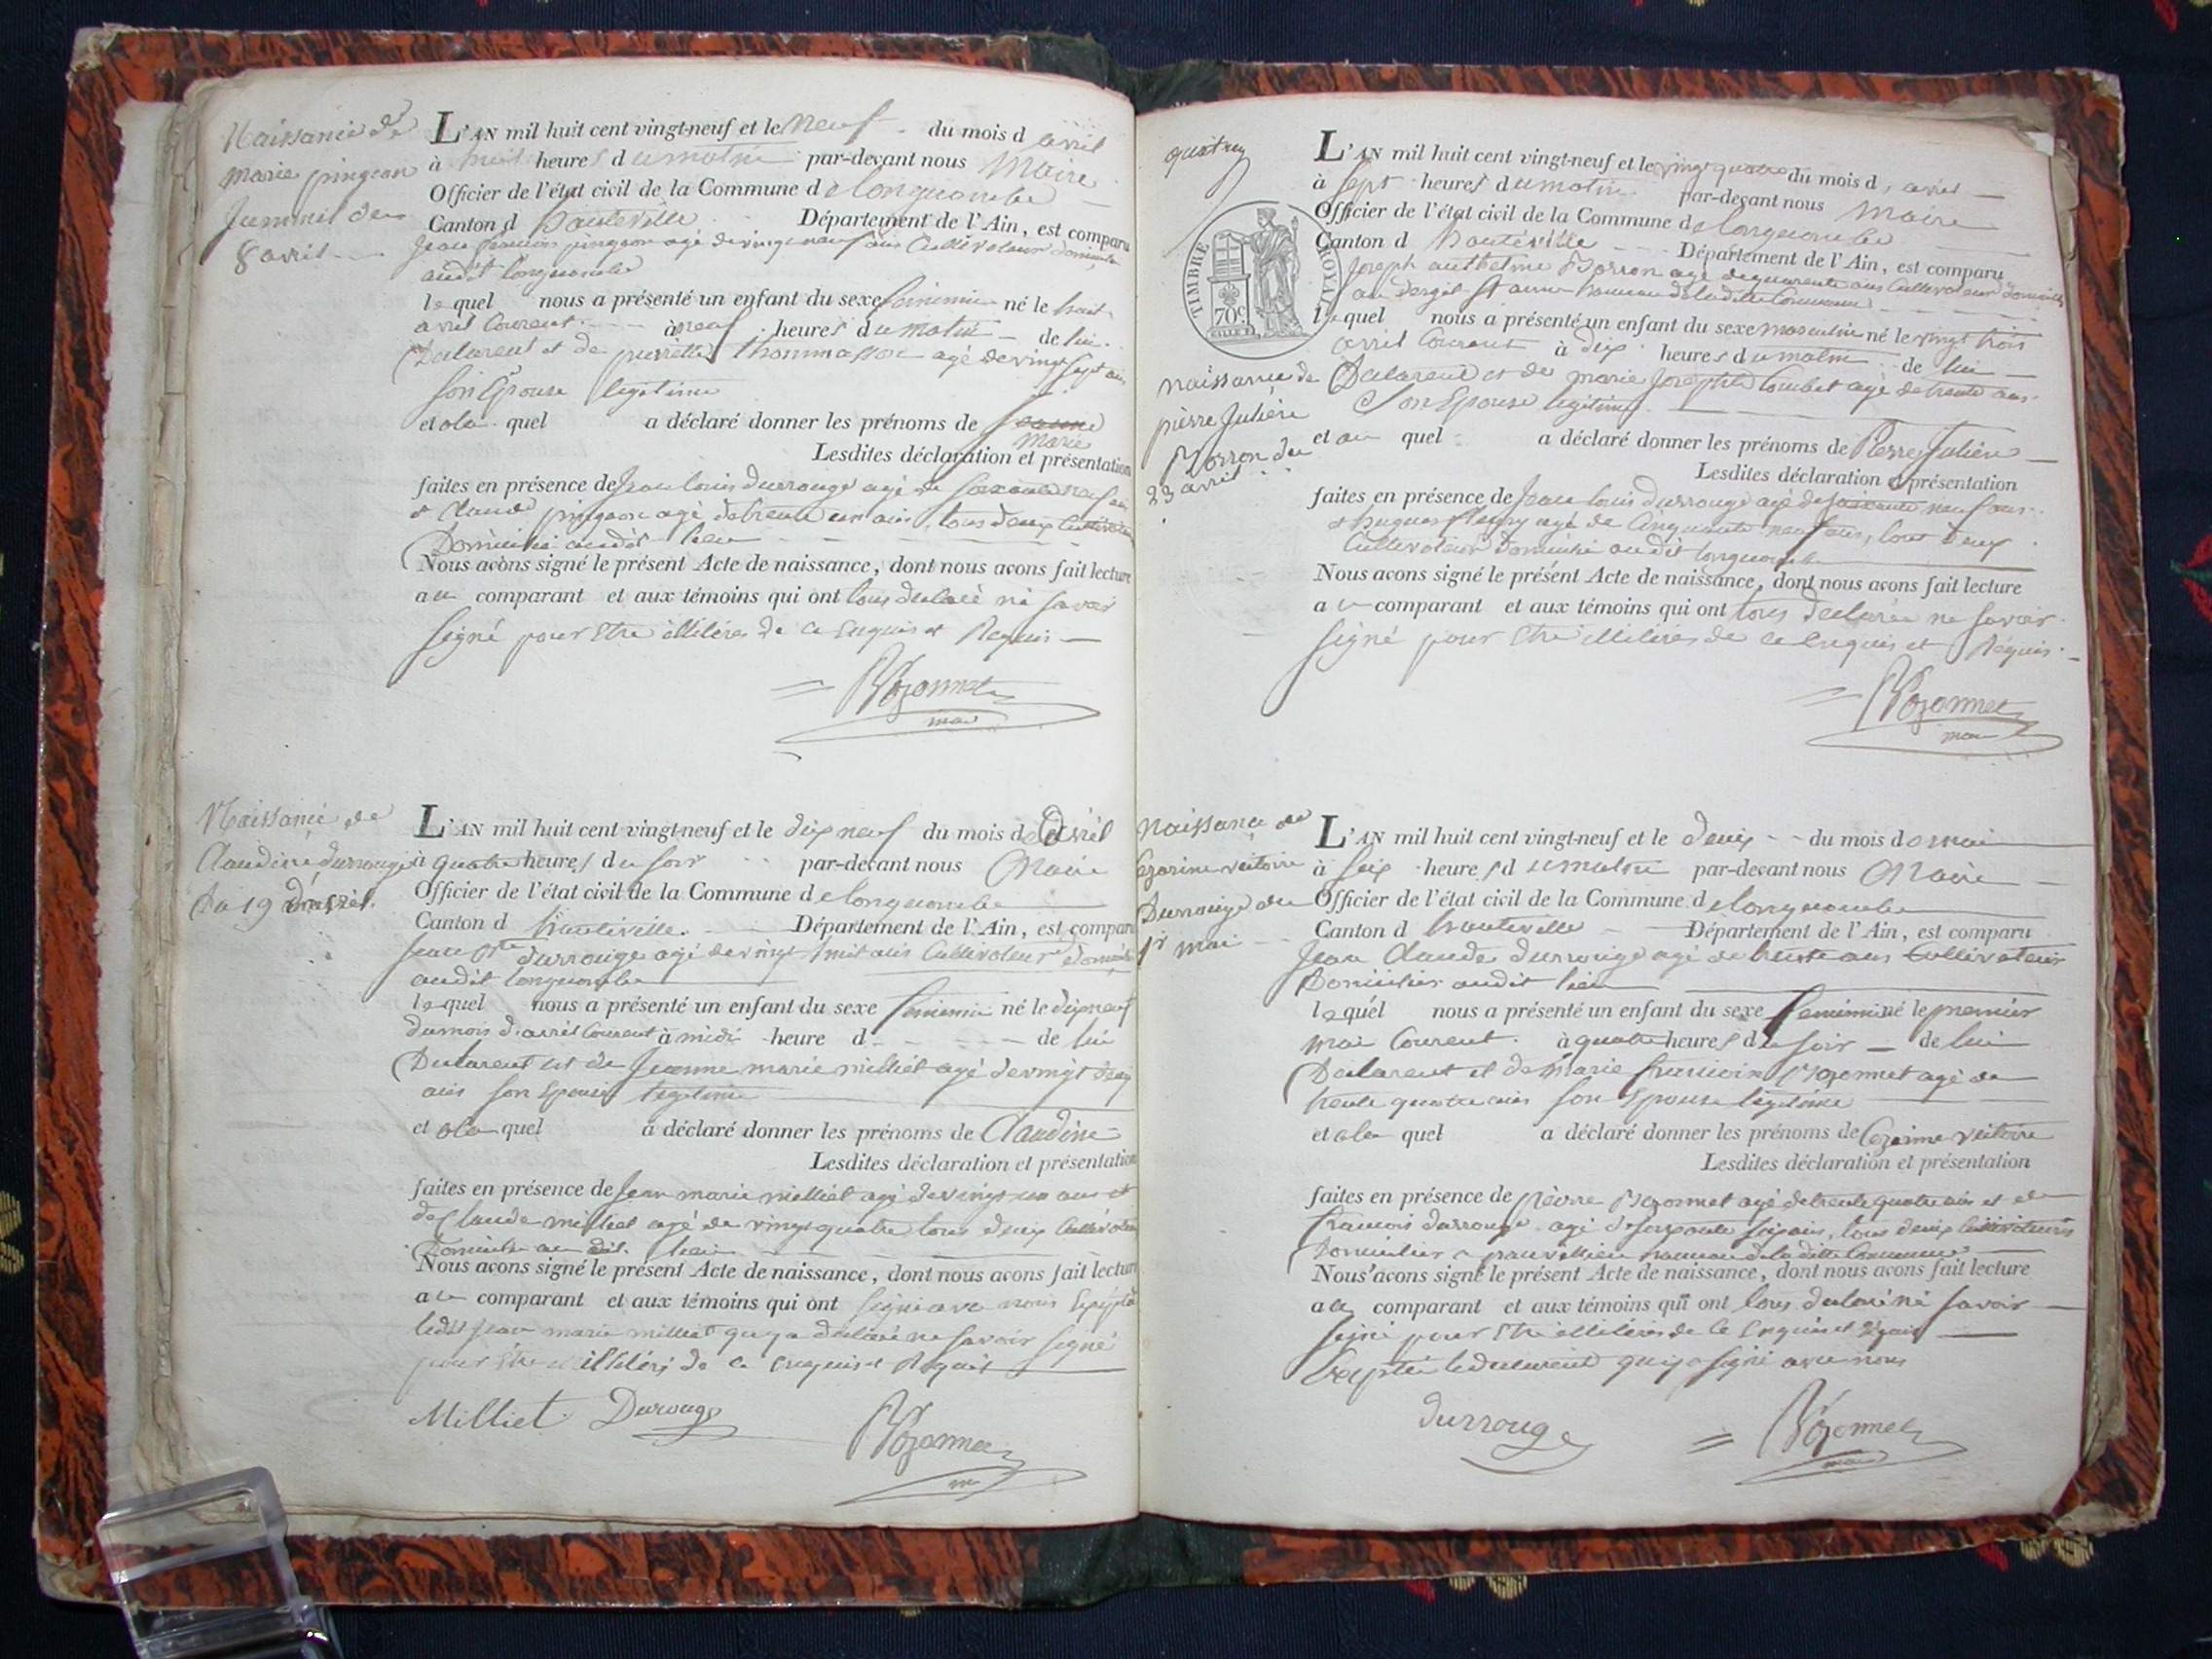 Naissance de
marie pingeon
Jumril du
8 avril
L'AN mil huit cent vingt-neuf et le neuf du mois d avril
à huit heures d u matin par-devant nous Maire
Officier de l'état civil de la Commune d e longecombe
Canton d hauteville Département de l'Ain, est comparu
Jean françois pingeon agé de vingt neuf ans Cultivateur domicilié
audit longecombe
le quel nous a présenté un enfant du sexe feminin né le huit
avril Courent à neuf heures d u matin de lui
Declarent et de pierrette thommasson agé de vingt sept ans
son Epouse legitime
et a la quel a déclaré donner les prénoms de
Marie
Lesdites déclaration et présentation
faites en présence de Jean louis durrouge agé de soixante neuf ans
et Claude pingeon agé de trente un ans, tous deux Cultivateur
Domicilié audit lieu
Nous avons signé le présent Acte de naissance, dont nous avons fait lecture
au comparant et aux témoins qui ont tous declaré ne savoir
signé pour Etre illiteres de ce Enquis et Requis
Bozonnet
maire
Naissance de
Claudine durrouge
Du 19 avril
L'AN mil huit cent vingt-neuf et le dix neuf du mois d avril
à quatre heures d u soir par-devant nous Maire
Officier de l'état civil de la Commune d e longecombe
Canton d hauteville Département de l'Ain, est comparu
Jean Bte durrouge agé de vingt huit ans Cultivateur domicilié
audit longecombe
le quel nous a présenté un enfant du sexe feminin né le dix neuf
du mois d'avril Courent à midi heure d de lui
Declarent et de Jeanne marie milliet agé de vingt deux
ans son Epouse legitime
et a la quel a déclaré donner les prénoms de Claudine
Lesdites déclaration et présentation
faites en présence de Jean marie milliet agé de vingt un ans et
de Claude milliet agé de vingt quatre tous deux Cultivateur
Domicilié au dit lieu
Nous avons signé le présent Acte de naissance, dont nous avons fait lecture
au comparant et aux témoins qui ont signé avec nous Excepté
ledit Jean marie milliet qui y a declaré ne savoir signé
pour Etre illiteré de ce Enquis et Requis
Milliet Durouge
Bozonnet
quatre
TIMBRE ROYAL
70 c.
L'AN mil huit cent vingt-neuf et le vingt quatre du mois d avril
à sept heures d u matin par-devant nous Maire
Officier de l'état civil de la Commune d e longecombe
Canton d hauteville Département de l'Ain, est comparu
Joseph anthelme Borron agé de quarente ans Cultivateur domicilié
hameau de la dite Commune
le quel nous a présenté un enfant du sexe masculin né le vingt trois
avril Courent à dix heures d u matin de lui
naissance de
pierre Juliére
Borron du
23 avril
Declarent et de marie Josephte Combet agé de trente ans
son Epouse legitime
et au quel a déclaré donner les prénoms de Pierre Juliére
Lesdites déclaration et présentation
faites en présence de Jean louis durrouge agé de soixante neuf ans
et hugues fleury agé de Cinquante neuf ans, tout deux
Cultivateur Domicilié audit longecombe
Nous avons signé le présent Acte de naissance, dont nous avons fait lecture
au comparant et aux témoins qui ont tous declaré ne savoir
signé pour Etre illiteres de ce Enquis et Requis
Bozonnet
maire
naissance de
Cezarine victoire
Durrouge du
1er mai
L'AN mil huit cent vingt-neuf et le deux du mois d e mai
à six heures d u matin par-devant nous Maire
Officier de l'état civil de la Commune d e longecombe
Canton d hauteville Département de l'Ain, est comparu
Jean Claude durrouge agé de trente ans Cultivateur
Domicilier audit lieu
le quel nous a présenté un enfant du sexe feminin né le premier
mai Courent à quatre heures d u soir de lui
Declarent et de marie francoise Bozonnet agé de
trente quatre ans son Epouse legitime
et a la quel a déclaré donner les prénoms de Cezarine Victoire
Lesdites déclaration et présentation
faites en présence de pierre Bozonnet agé de trente quatre ans et de
francois durrouge agé de soixante six ans, tous deux Cultivateurs
Domicilier a hameau de la dite Commune
Nous avons signé le présent Acte de naissance, dont nous avons fait lecture
au comparant et aux témoins qui ont tous declaré ne savoir
signé pour Etre illiteres de ce Enquis et Requis
Excepté le declarent qui y a signé avec nous
durrouge
Bozonnet
maire